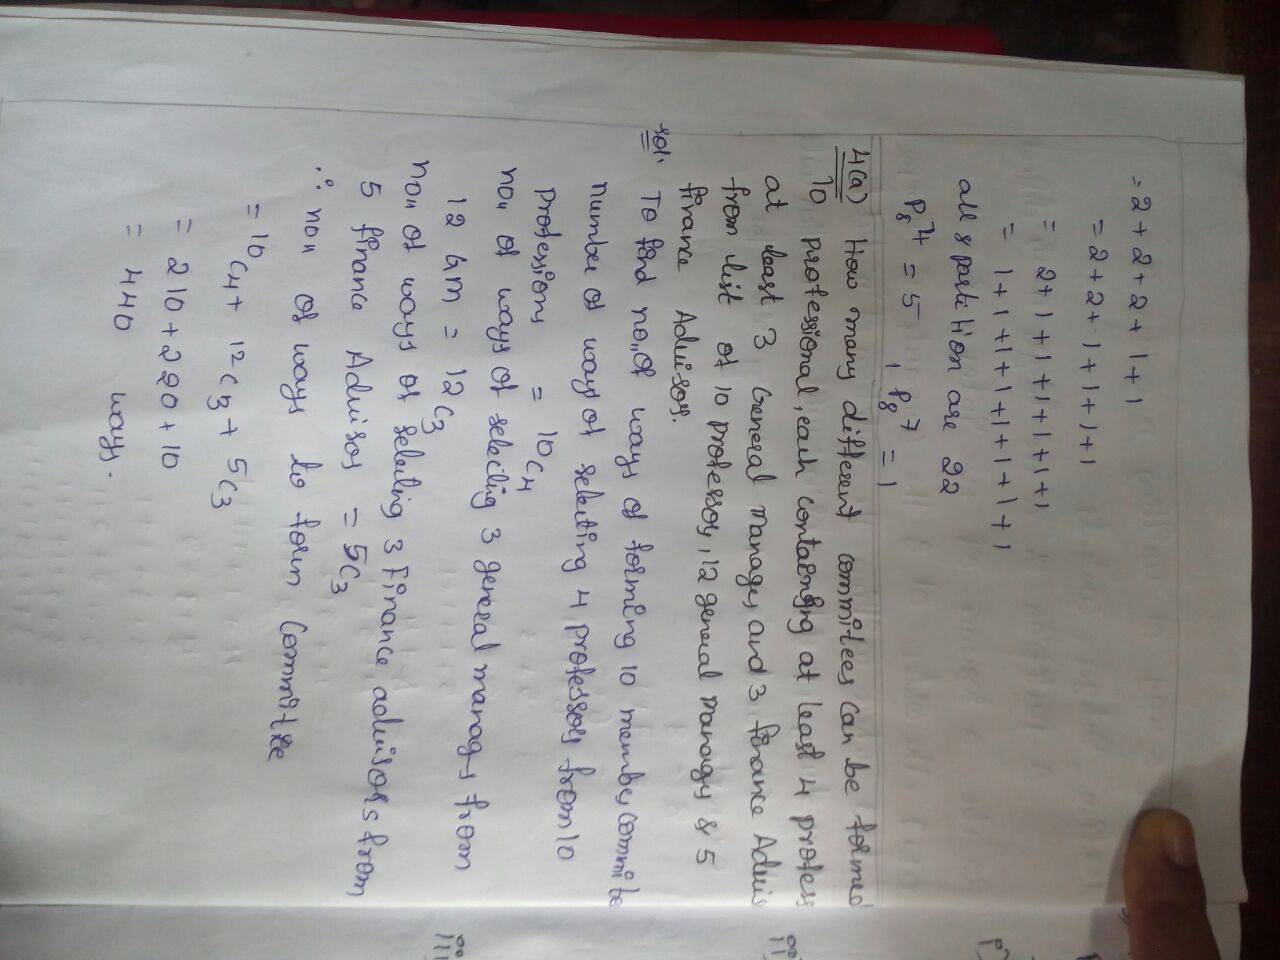 = 2 + 2 + 2 + 1 + 1
= 2 + 2 + 1 + 1 + 1 + 1
= 2 + 1 + 1 + 1 + 1 + 1 + 1
= 1 + 1 + 1 + 1 + 1 + 1 + 1 + 1
all 8 partition are 22
P₈⁴ = 5 , P₈⁷ = 1
4(a) How many different commitees can be formed
10 professional, each containing at least 4 profess
at least 3 General manages and 3 finance Advis
from list of 10 professos, 12 general manags & 5
finance Advisos.
sol. To find no,, of ways of forming 10 members commite
number of ways of selecting 4 professors from 10
professions = 10C4
no,, of ways of selecting 3 general manags from
12 GM = 12C3
no,, of ways of selecting 3 Finance advisors from
5 finance Advisos = 5C3
∴ no,, of ways to form Committee
= 10C4 + 12C3 + 5C3
= 210 + 220 + 10
= 440 ways.
i)
ii)
iii)